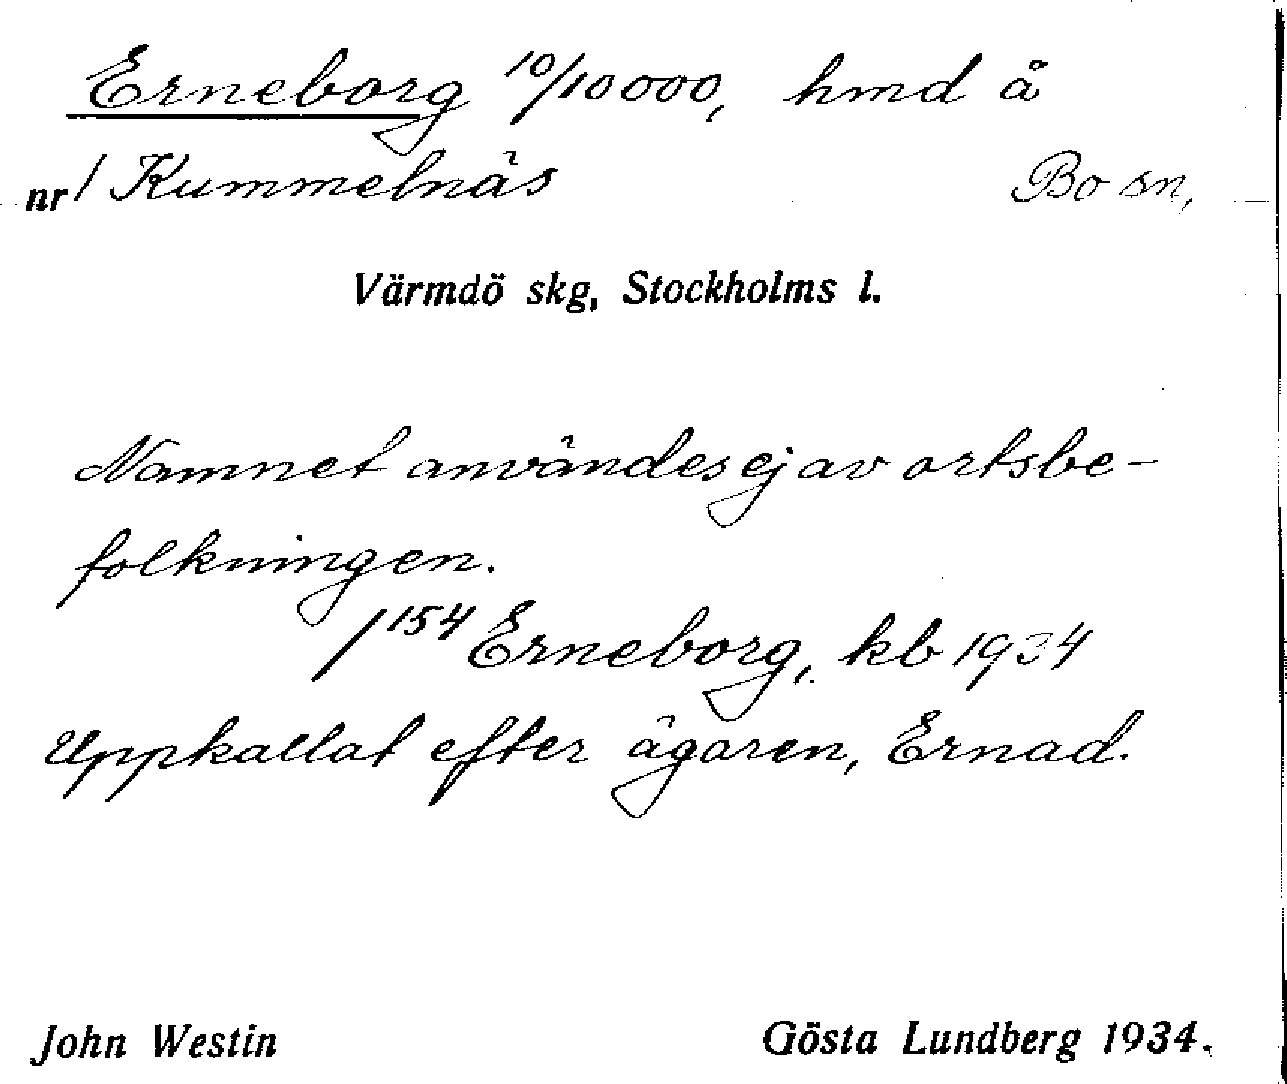 Erneborg 10/10000, hmd å
nr 1 Kummelnäs Bo sn,
Värmdö skg, Stockholms l.
Namnet användes ej av ortsbe-
folkningen.
1 154 Erneborg, kb 1934
Uppkallat efter ägaren, Ernad.
John Westin Gösta Lundberg 1934.